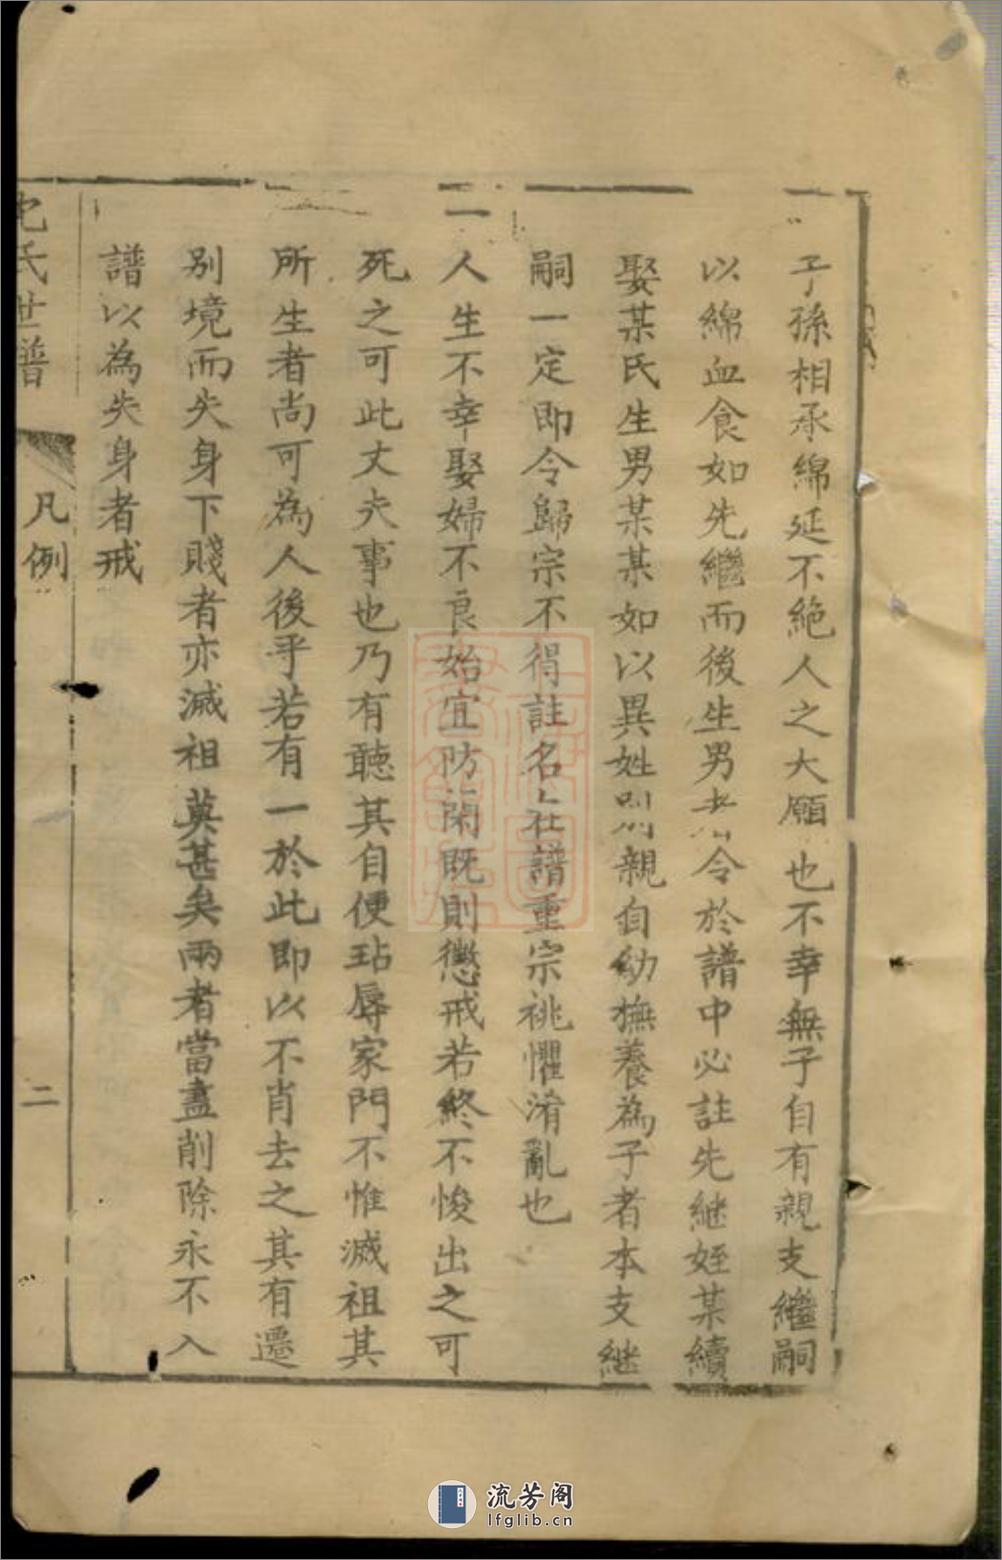 一子孫相承綿延不絶人之大願也不幸無子自有親支繼嗣
以綿血食如先繼而後生男者令於譜中必註先継姪某續
娶某氏生男某某如以異姓別親自幼撫養為子者本支継
嗣一定即令歸宗不得註名在譜重宗祧懼淆亂也
一人生不幸娶婦不良始宜防閑既則懲戒若終不悛出之可
死之可此丈夫事也乃有聽其自便玷辱家門不惟滅祖其
所生者尚可為人後乎若有一於此即以不肖去之其有遷
別境而失身下賤者亦滅祖莫甚矣兩者當盡削除永不入
譜以為失身者戒
氏世譜
凡例
二
流芳阁
lfglib.cn